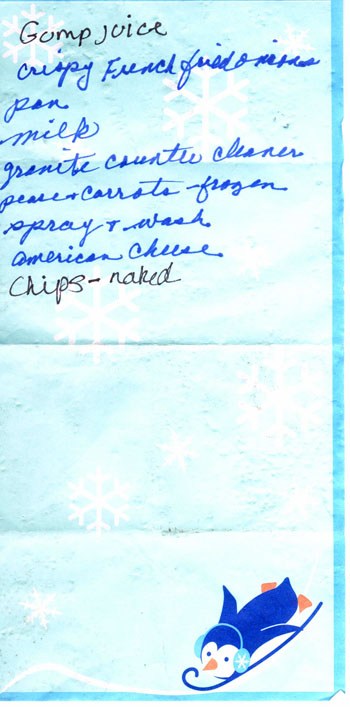 Gomp juice
crispy French fried onions
pan
milk
granite counter cleaner
peas + carrots - frozen
spray + wash
american cheese
Chips - naked